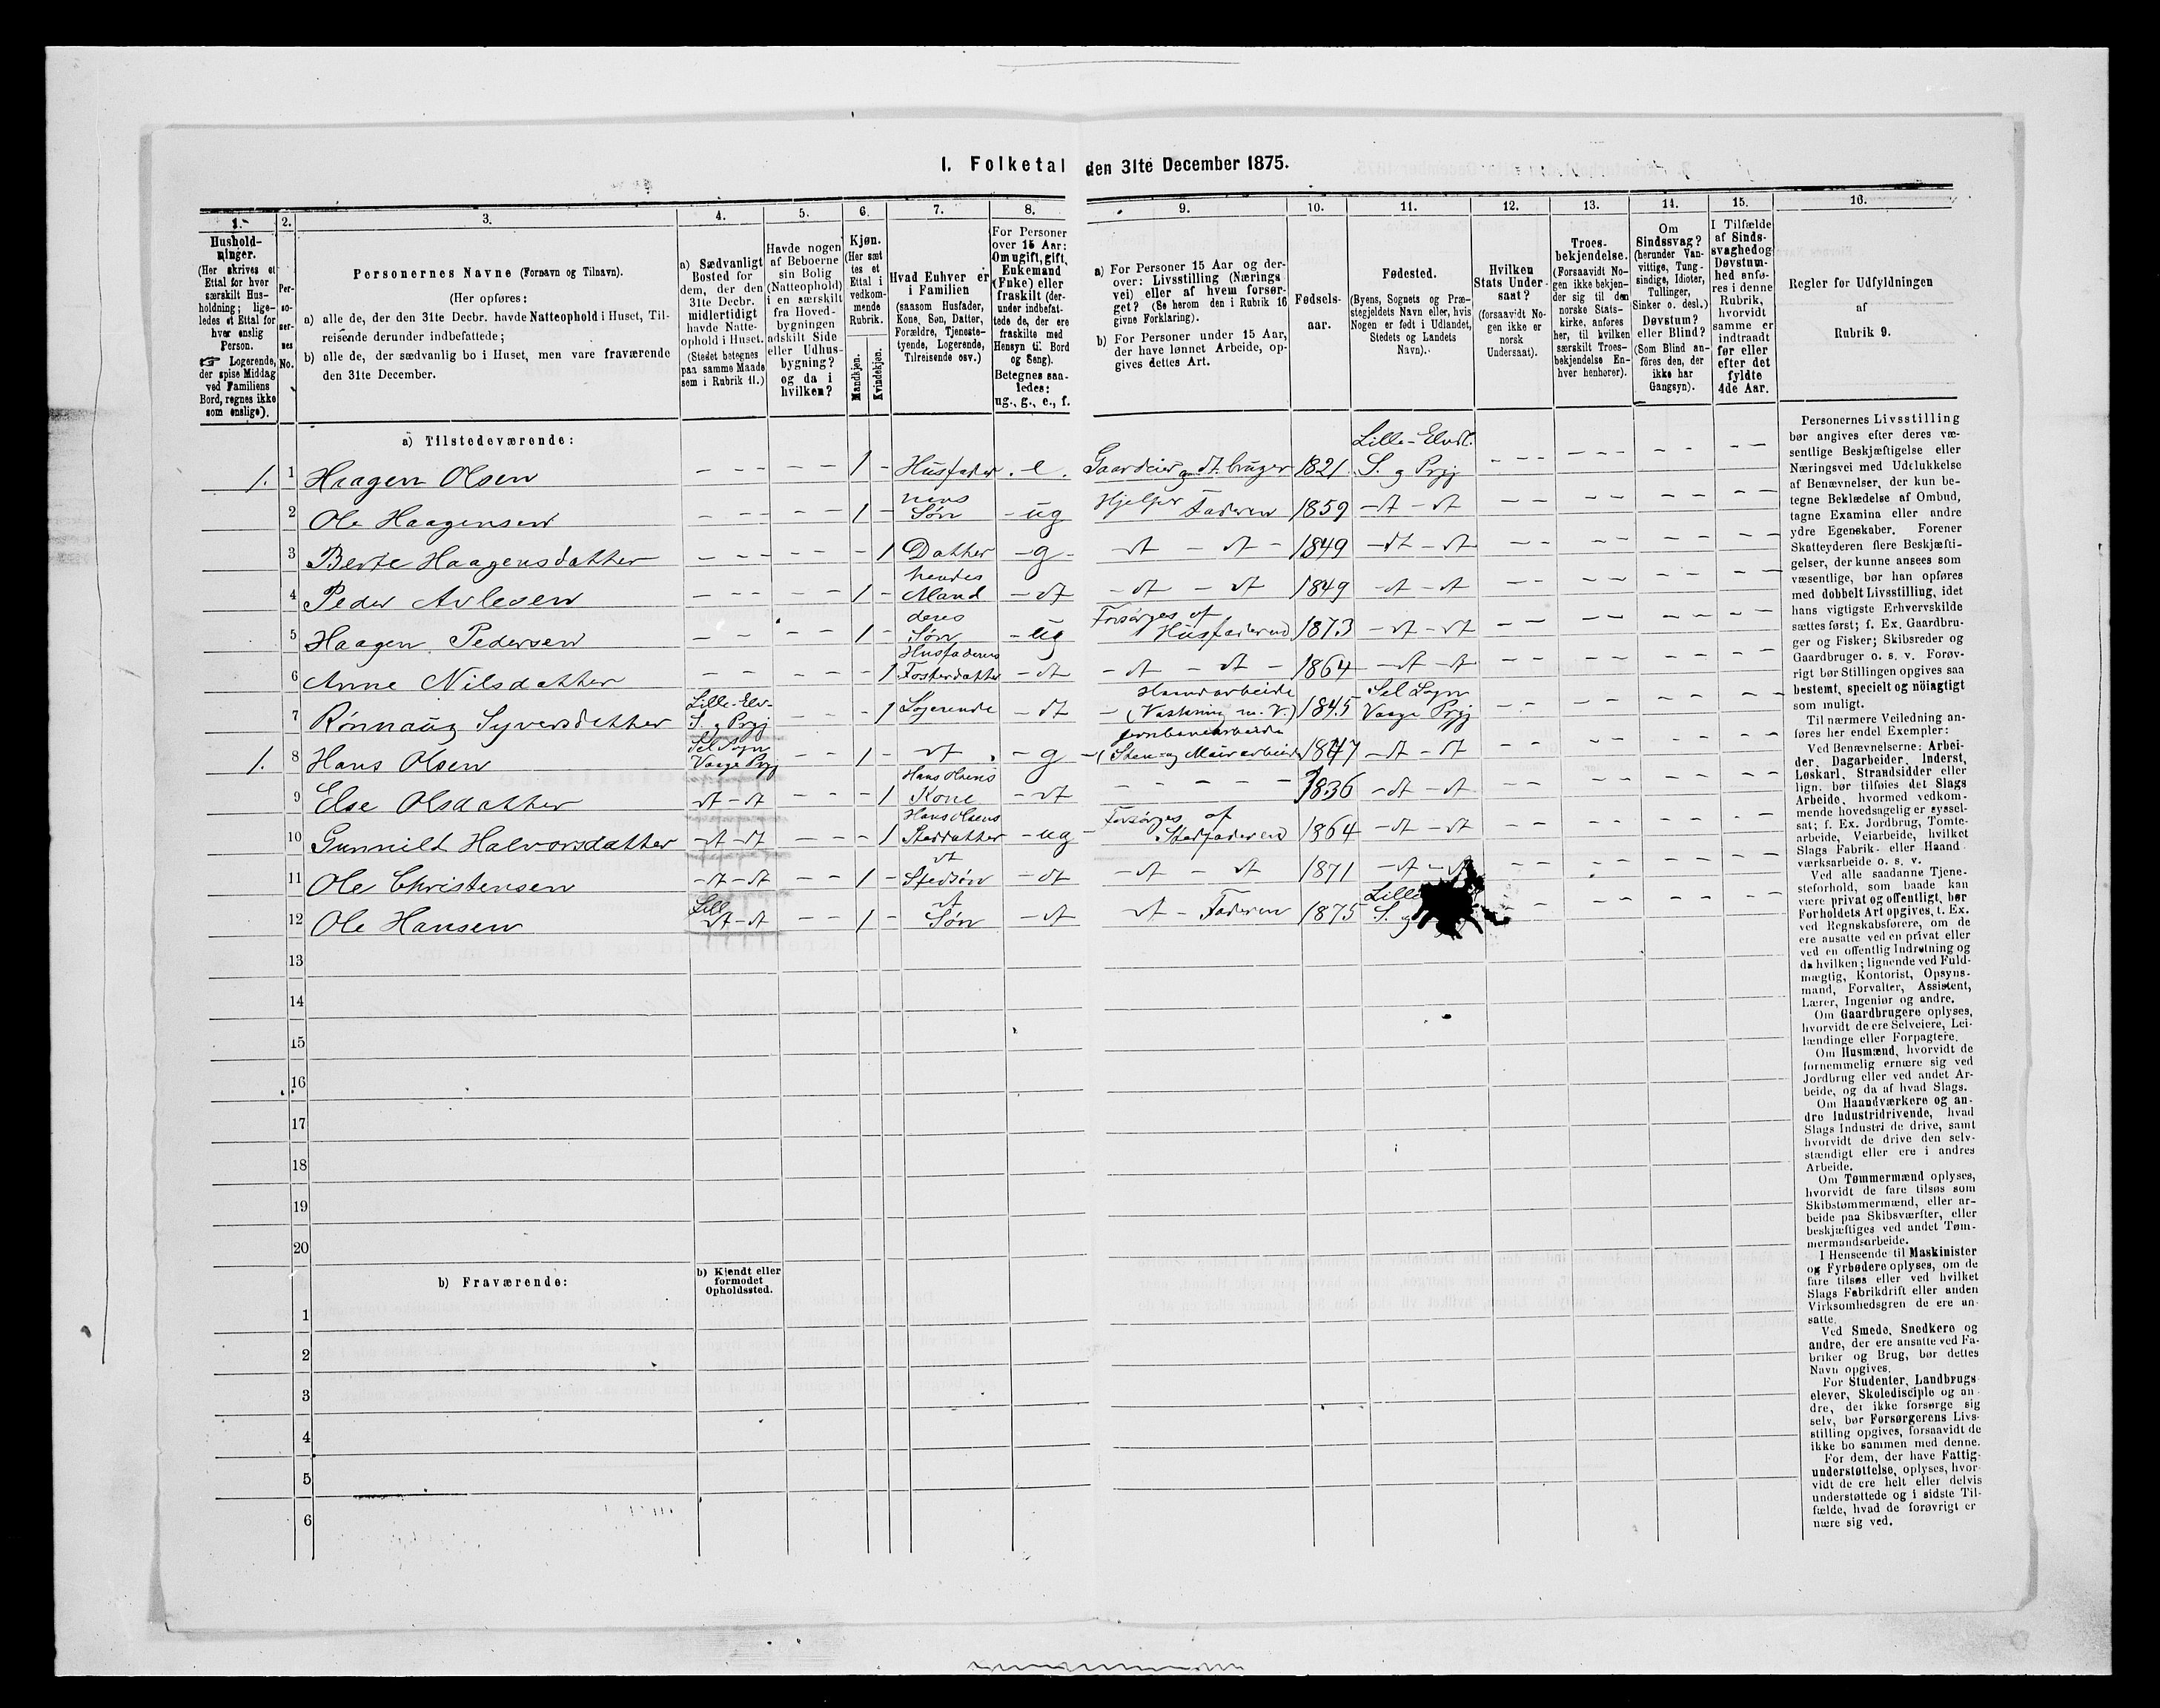 I. Folketal den 31te December 1875.
1. 2. 3. 4. 5. 6. 7. 8. 9. 10. 11. 12. 13. 14. 15. 16.
Hushold-
ninger.
(Her skrives et
Ettal for hver
særskilt Hus-
holdning; lige-
ledes et Ettal for
hver enslig
Person.
☞ Logerende,
der spise Middag
ved Familiens
Bord, regnes ikke
som enslige).
Per-
so-
ner-
nes
No.
Personernes Navne (Fornavn og Tilnavn).
(Her opføres:
a) alle de, der den 31te Decbr. havde Natteophold i Huset, Til-
reisende derunder indbefattede;
b) alle de, der sædvanlig bo i Huset, men vare fraværende
den 31te December.
a) Sædvanligt
Bosted for
dem, der den
31te Decbr.
midlertidigt
havde Natte-
ophold i Huset.
(Stedet betegnes
paa samme Maade
som i Rubrik 11.)
Havde nogen
af Beboerne
sin Bolig
(Natteophold)
i en særskilt
fra Hoved-
bygningen
adskilt Side
eller Udhus-
bygning?
og da i
hvilken?
Kjøn.
(Her sæt-
tes et
Ettal i
vedkom-
mende
Rubrik.
Mandkjøn.
Kvindekjøn.
Hvad Enhver er
i Familien
(saasom Husfader,
Kone, Søn, Datter,
Forældre, Tjeneste-
tyende, Logerende,
Tilreisende osv.)
For Personer
over 15 Aar:
Om ugift, gift,
Enkemand
(Enke) eller
fraskilt (der-
under indbefat-
tede de, der ere
fraskilte med
Hensyn til Bord
og Seng).
Betegnes saa-
ledes:
ug., g., e., f.
a) For Personer 15 Aar og der-
over: Livsstilling (Nærings-
vei) eller af hvem forsør-
get? (Se herom den i Rubrik 16
givne Forklaring).
b) For Personer under 15 Aar,
der have lønnet Arbeide, op-
gives dettes Art.
Fødsels-
aar.
Fødested.
(Byens, Sognets og Præ-
stegjeldets Navn eller, hvis
Nogen er født i Udlandet,
Stedets og Landets
Navn).
Hvilken
Stats Under-
saat?
(forsaavidt No-
gen ikke er
norsk
Undersaat).
Troes-
bekjendelse.
(Forsaavidt No-
gen ikke bekjen-
der sig til den
norske Stats-
kirke, anføres
her, til hvilken
særskilt Troes-
bekjendelse En-
hver henhører).
Om
Sindssvag?
(herunder Van-
vittige, Tung-
sindige, Idioter,
Tullinger,
Sinker o. desl.)
Døvstum?
eller Blind?
(Som Blind an-
føres den, der
ikke har
Gangsyn).
I Tilfælde
af Sinds-
svaghed og
Døvstum-
hed anfø-
res i denne
Rubrik,
hvorvidt
samme er
indtraadt
før eller
efter det
fyldte
4de Aar.
Regler for Udfyldningen
af
Rubrik 9.
a) Tilstedeværende:
1. 1 Haagen Olsen – – – – – 1 – Husfader e. Gaardeier og dt. bruger 1821 Lille-Elvd. S. og Prgj – – – – – – – –
2 Ole Haagensen – – – – – 1 – hens Søn – ug Hjelper Faderen 1859 – dt – dt – – – – – – – –
3 Berte Haagensdatter – – – – – – 1 Datter – g – – dt – dt – 1849 – dt – dt – – – – – – – –
4 Peder Arlesen – – – – – 1 – hendes Mand – dt – dt – dt 1849 – dt – dt – – – – – – – –
5 Haagen Pedersen – – – – 1 – deres Søn – ug Forsørges af Husfaderen 1873 – dt – dt – – – – – – – –
6 Anne Nilsdatter – – – – – 1 Husfaderens Fosterdatter – dt – dt – dt – 1864 – dt – dt – – – – – – – –
7 Rønnaug Syversdatter Lille-Elv- S. og Prgj – – – 1 Logerende – dt – Haandarbeide (Vaskning m. V.) 1845 Sel Sogn Vaage Prgj – – – – – – – –
1. 8 Hans Olsen Sel Sogn Vaage Prgj – – 1 – dt – g – Jernbanearbeide (Sten- og Murarbeide 1847 – dt – dt – – – – – – – –
9 Else Olsdatter dt – dt – – – 1 Hans Olsens Kone – dt – – – – – 1836 – dt – dt – – – – – – – –
10 Gunnild Halvorsdatter – dt – dt – – – 1 Hans Olsens Steddatter – ug – Forsørges af Stedfaderen 1864 – dt – dt – – – – – – – –
11 Ole Christensen – dt – dt – – 1 – dt Stedsøn – dt – dt – dt 1871 – dt – dt – – – – – – – –
12 Ole Hansen Lill dt – dt – – 1 – dt Søn – dt dt – Faderen 1875 Lille S. og – – – – – – –
13
14
15
16
17
18
19
20
b) Fraværende:
b) Kjendt eller
formodet
Opholdssted.
1
2
3
4
5
6
Personernes Livsstilling
bør angives efter deres væ-
sentlige Beskjæftigelse eller
Næringsvei med Udelukkelse
af Benævnelser, der kun be-
tegne Beklædelse af Ombud,
tagne Examina eller andre
ydre Egenskaber. Forener
Skatteyderen flere Beskjæfti-
gelser, der kunne ansees som
væsentlige, bør han opføres
med dobbelt Livsstilling, idet
hans vigtigste Erhvervskilde
sættes først; f. Ex. Gaardbru-
ger og Fisker; Skibsreder og
Gaardbruger o. s. v. Forøv-
rigt bør Stillingen opgives saa
bestemt, specielt og nöiagtigt
som muligt.
Til nærmere Veiledning an-
føres her endel Exempler:
Ved Benævnelserne: Arbei-
der, Dagarbeider, Inderst,
Løskarl, Strandsidder eller
lign. bør tilføies det Slags
Arbeide, hvormed vedkom-
mende hovedsagelig er syssel-
sat; f. Ex. Jordbrug, Tomte-
arbeide, Veiarbeide, hvilket
Slags Fabrik- eller Haand-
værksarbeide o. s. v.
Ved alle saadanne Tjene-
steforhold, som baade kan
være privat og offentligt, bør
Forholdets Art opgives, t. Ex.
ved Regnskabsførere, om de
ere ansatte ved en privat eller
ved en offentlig Indretning og
da hvilken; lignende ved Fuld-
mægtig, Kontorist, Opsyns-
mand, Forvalter, Assistent,
Lærer, Ingeniør og andre.
Om Gaardbrugere oplyses,
hvorvidt de ere Selveiere, Lei-
lændinge eller Forpagtere.
Om Husmænd, hvorvidt de
fornemmelig ernære sig ved
Jordbrug eller ved andet Ar-
beide, og da af hvad Slags.
Om Haandværkere og an-
dre Industridrivende, hvad
Slags Industri de drive, samt
hvorvidt de drive den selv-
stændigt eller ere i andres
Arbeide.
Om Tømmermænd oplyses,
hvorvidt de fare tilsøs som
Skibstømmermænd, eller ar-
beide paa Skibsværfter, eller
beskjæftiges ved andet Tøm-
mermandsarbeide.
I Henseende til Maskinister
og Fyrbødere oplyses, om de
fare tilsøs eller ved hvilket
Slags Fabrikdrift eller anden
Virksomhedsgren de ere an-
satte.
Ved Smede, Snedkere og
andre, der ere ansatte ved Fa-
briker og Brug, bør dettes
Navn opgives.
For Studenter, Landbrugs-
elever, Skoledisciple og an-
dre, der ikke forsørge sig
selv, bør Forsørgerens Livs-
stilling opgives, forsaavidt de
ikke bo sammen med denne.
For dem, der have Fattig-
understøttelse, oplyses, hvor-
vidt de ere helt eller delvis
understøttede og i sidste Til-
fælde, hvad de forøvrigt er
nære sig ved.